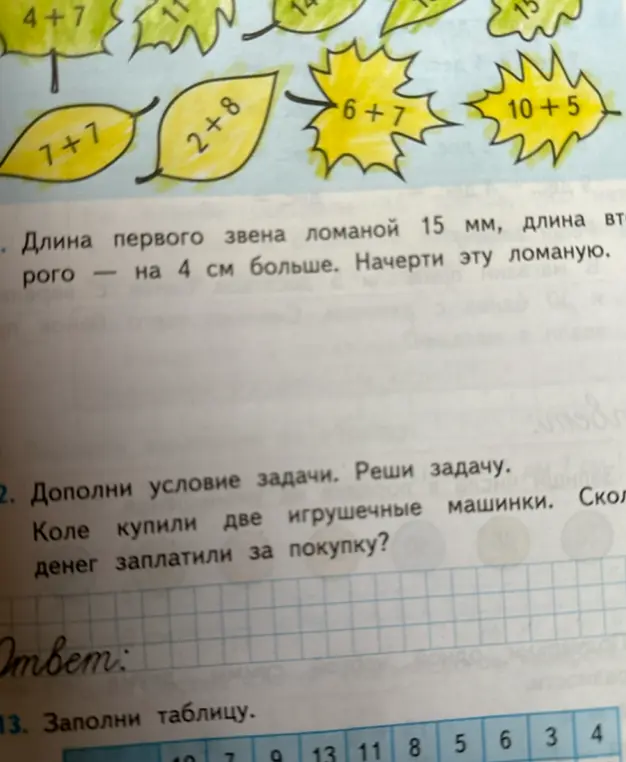 4 + 7
11
14
15
7 + 7
2 + 8
6 + 7
10 + 5
. Длина первого звена ломаной 15 мм, длина вт
рого — на 4 см больше. Начерти эту ломаную.
2. Дополни условие задачи. Реши задачу.
Коле купили две игрушечные машинки. Скол
денег заплатили за покупку?
Ответ:
13. Заполни таблицу.
10 7 9 13 11 8 5 6 3 4